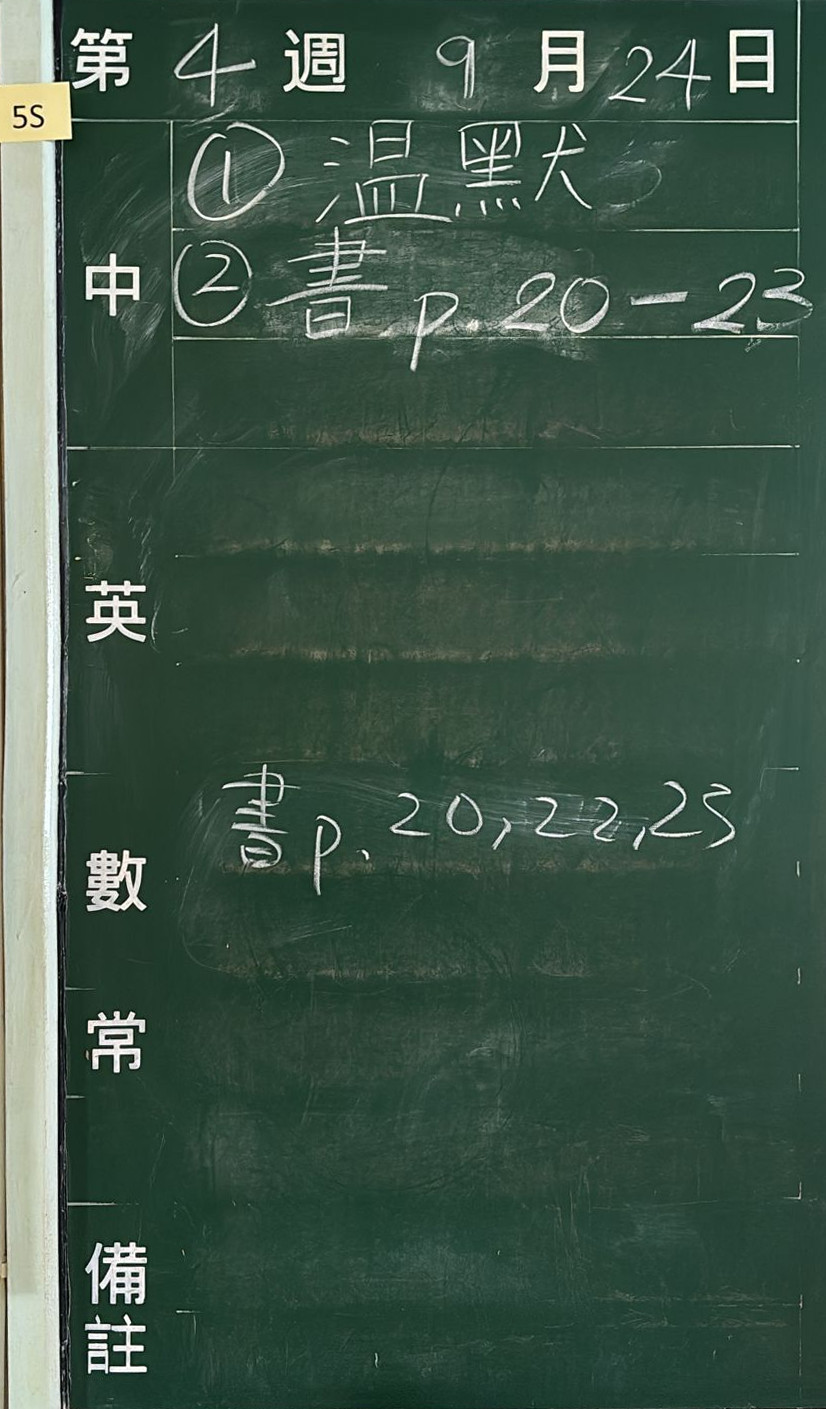 第 4 週 9 月 24 日
5S
中
① 温默
② 書 p.20-23
英
數
書 p.20,22,23
常
備註